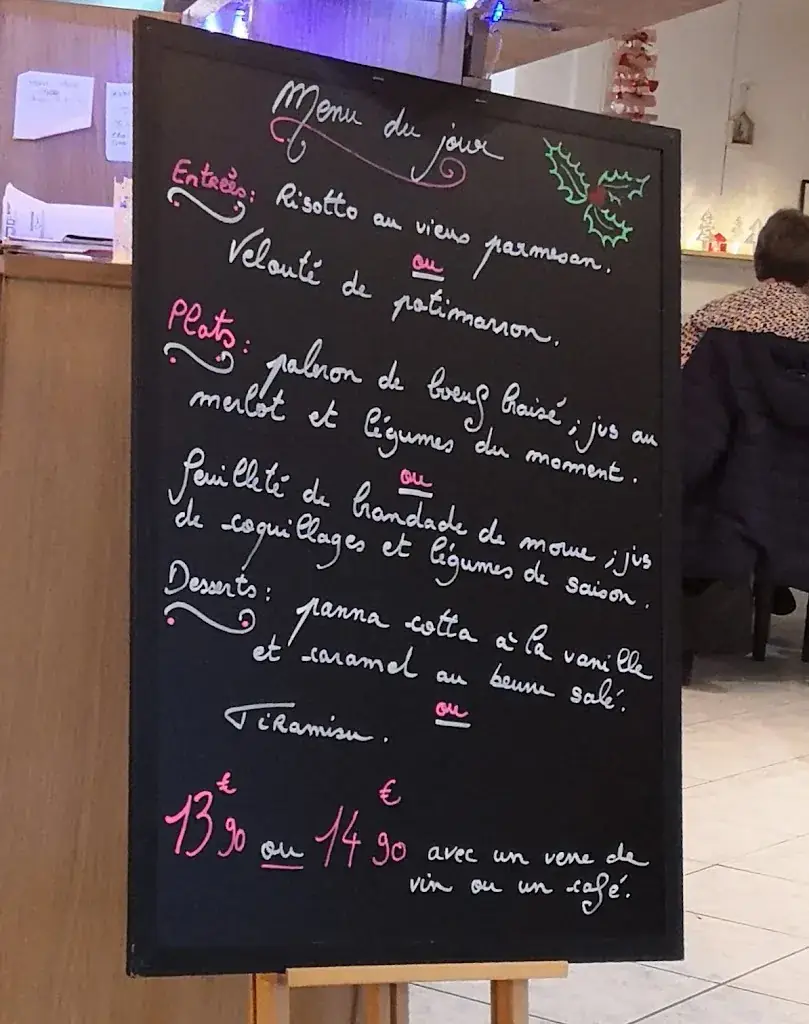 Menu du jour
Entrées: Risotto au vieux parmesan.
ou
Velouté de potimarron.
Plats: paleron de boeuf braisé, jus au
merlot et légumes du moment.
ou
feuilleté de brandade de morue, jus
de coquillages et légumes de saison.
Desserts: panna cotta à la vanille
et caramel au beurre salé.
ou
Tiramisu.
13€90 ou 14€90 avec un verre de
vin ou un café.